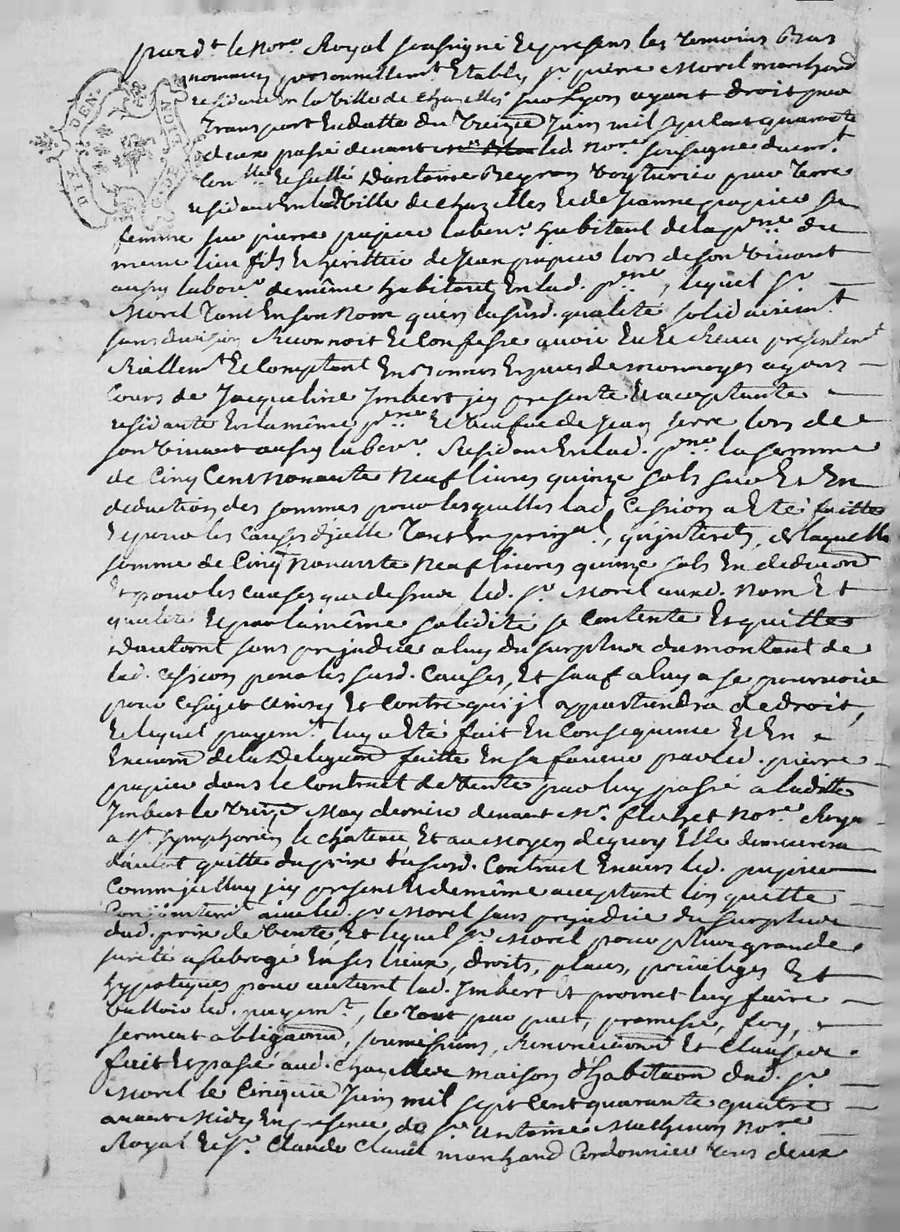 pard.t le No.re Royal soussigné et presens les temoins bas
nommés personnellem.t Etably s.r pierre Morel marchand
residant en la ville de chazelles sur Lyon ayant droit par
transport en datte du treize Juin mil sept cent quarante
deux passé devant led no.re soussigné duem.t
Con.llé et scellé d'antoine Beyron voyturier par terre
residant en la ville de chazelles et de Jeanne papier sa
femme sur pierre papier labou.r habitant de la p.sse du
meme lieu fils et heritier de Jean papier lors de son vivant
aussy labou.r de même habitant en lad. p.sse, lequel s.r
Morel tant en son nom qu'en la susd. qualité solidairem.t
sans division Reconnoit et Confesse avoir Eu et Receu presentem.t
Reellem.t et Comptant en bonnes Especes de monnoyes ayans
Cours de Jacqueline Imbert icy presente et acceptante
residante En la même p.sse et veufve de Jean serre lors de
son vivant aussy labou.r Residant en lad. p.sse la somme
de Cinq Cent nonante Neuf livres quinze sols sur Et En
deduction des sommes pour lesquelles lad. Cession a Eté faitte
Et pour les Causes d'jcelle tant En prin.al, qu'interets, de laquelle
somme de Cinq nonante Neuf livres quinze sols En deduction
Et pour les causes que dessus led. s.r Morel aud. nom Et
qualité Et par la même solidité se contente Et quitte
d'autant sans prejudice a luy du surplus du montant de
lad. cession pour les susd. Causes, Et sauf a luy a se pourvoir
pour ce sujet ainsy Et Contre qu'jl appartiendra de droit,
Et lequel payem.t luy a Eté fait En Consequence Et En
de la Delegaon faitte En sa faveur par led. pierre
papier dans le Contract de Vente par luy passé a laditte
Imbert le treize May dernier devant M.e no.re Roya
a S.t symphorien le chateau, Et au moyen de quoy Elle demeurera
d'autant quitte du prix dususd. Contract Envers led. papier
Comm'jcelluy icy present Et de même acceptant l'en quitte
Conjointem.t avec led. s.r Morel sans prejudice du surplus
dud. prix de Vente, Et lequel s.r Morel pour plus grande
sureté a subrogé En ses lieux, droits, place, privileges Et
hypoteques pour autant lad. Imbert Et promet luy faire
valloir led. payem.t, le tout par pact, promesse, foy,
serment obligaons, soumissions, Renonciaons Et Clauses.
fait Et passé aud. Chazelles maison d'habitaon dud. s.r
Morel le Cinquie Juin mil sept Cent quarante quatre
avant Midy En presence de s.r Antoine Mathevon No.re
Royal Et s.r Claude Clavel marchand Cordonnier tous deux